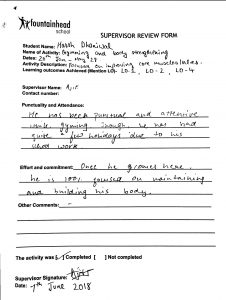 fountainhead
school
SUPERVISOR REVIEW FORM
Student Name: Harsh Dhaniwal
Name of Activity: Gymming and body strengthing
Dates: 20th Jan - May 29
Activity Description: focused on improving core muscles/abs.
Learning outcomes Achieved (Mention LO): LO-1, LO-2, LO-4
Supervisor Name: Ajit
Contact number:
Punctuality and Attendance:
He has been punctual and attentive
while gyming though he has had
quite few holidays due to his
school work
Effort and commitment: Once he comes here
he is 100% focused on maintaining
and building his body.
Other Comments: -
The activity was [✓] Completed [ ] Not completed
Supervisor Signature:
Date: 7th June 2018